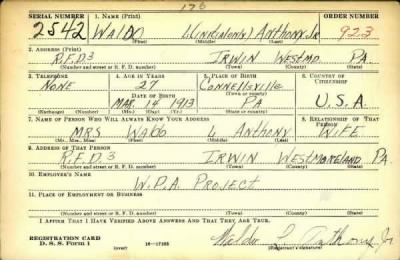 176
SERIAL NUMBER 1. NAME (Print) ORDER NUMBER
2542 WALDO L(INITIAL ONLY) ANTHONY JR 923
(First) (Middle) (Last)
2. ADDRESS (Print)
R.F.D 3 IRWIN WESTMD. PA.
(Number and street or R. F. D. number) (Town) (County) (State)
3. TELEPHONE 4. AGE IN YEARS 5. PLACE OF BIRTH 6. COUNTRY OF CITIZENSHIP
NONE 27 CONNELLSVILLE
DATE OF BIRTH (Town or county)
MAR. 14 1913 PA U.S.A.
(Exchange) (Number) (Mo.) (Day) (Yr.) (State or country)
7. NAME OF PERSON WHO WILL ALWAYS KNOW YOUR ADDRESS 8. RELATIONSHIP OF THAT PERSON
MRS WALDO L ANTHONY WIFE
(Mr., Mrs., Miss) (First) (Middle) (Last)
9. ADDRESS OF THAT PERSON
R.F.D. 3 IRWIN WESTMORELAND PA.
(Number and street or R. F. D. number) (Town) (County) (State)
10. EMPLOYER'S NAME
W.P.A. PROJECT
11. PLACE OF EMPLOYMENT OR BUSINESS
(Number and street or R. F. D. number) (Town) (County) (State)
I AFFIRM THAT I HAVE VERIFIED ABOVE ANSWERS AND THAT THEY ARE TRUE.
REGISTRATION CARD
D. S. S. Form 1 (over) 16—17105 Waldo L. Anthony Jr
(Registrant's signature)